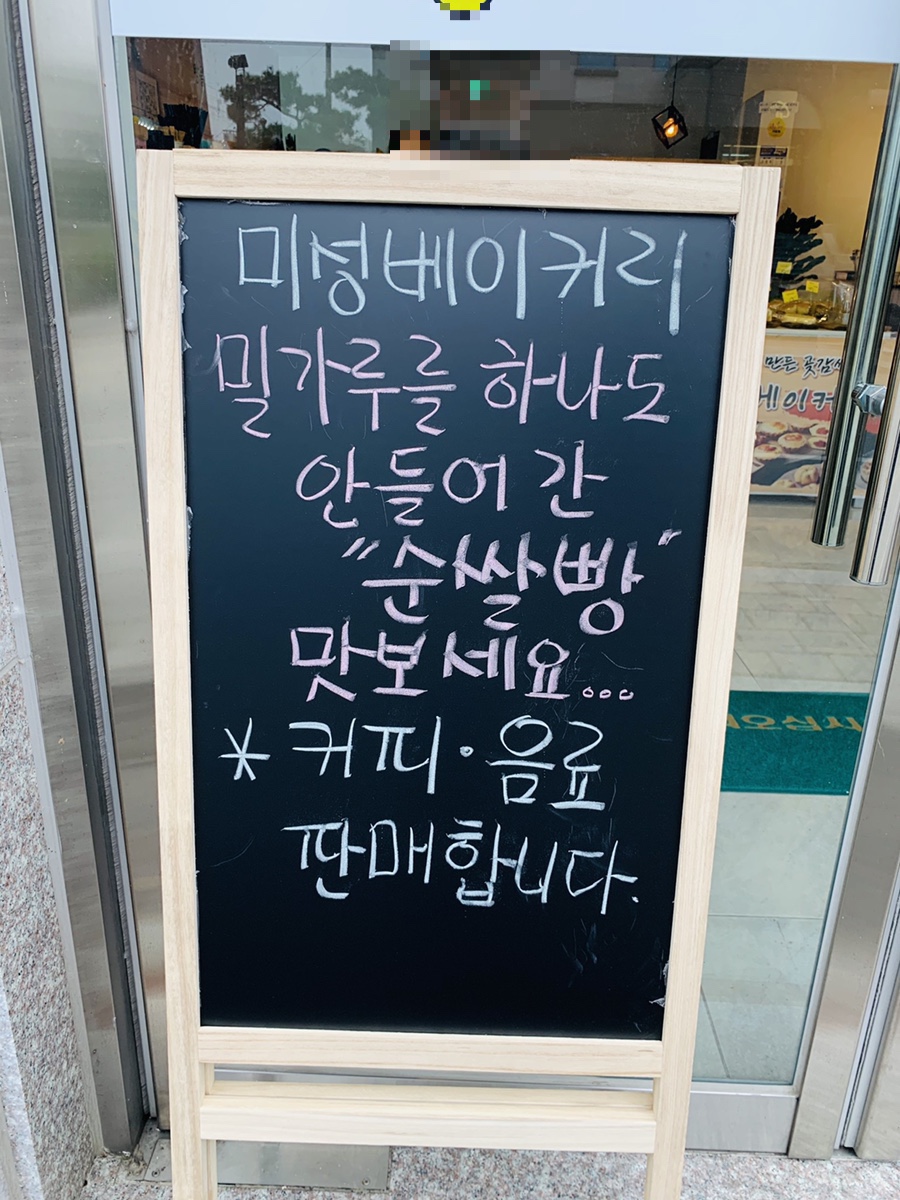 미성베이커리
밀가루를 하나도
안들어간
"순쌀빵"
맛보세요...
* 커피·음료
판매합니다.
만든 곶감
베이커